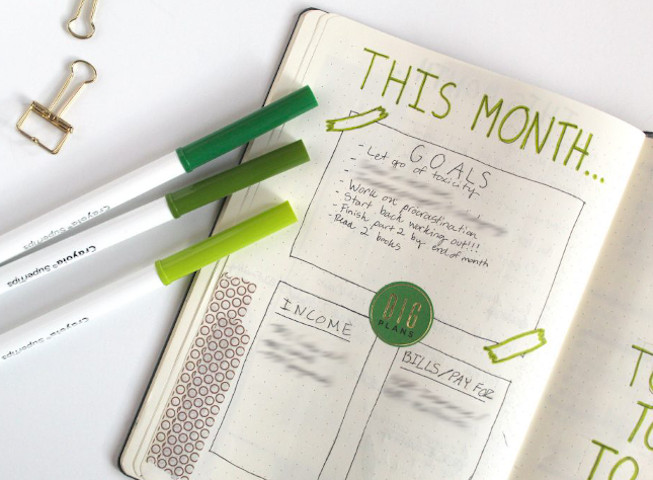 THIS MONTH...
GOALS
- Let go of toxicity
-
- Work on procrastination
- Start back working out!!!
- Finish part 2 by end of month
- Read 2 books
BIG
PLANS
INCOME
BILLS/PAY FOR
Crayola® SuperTips
Crayola® SuperTips
Crayola® SuperTips
TO
TO
TO